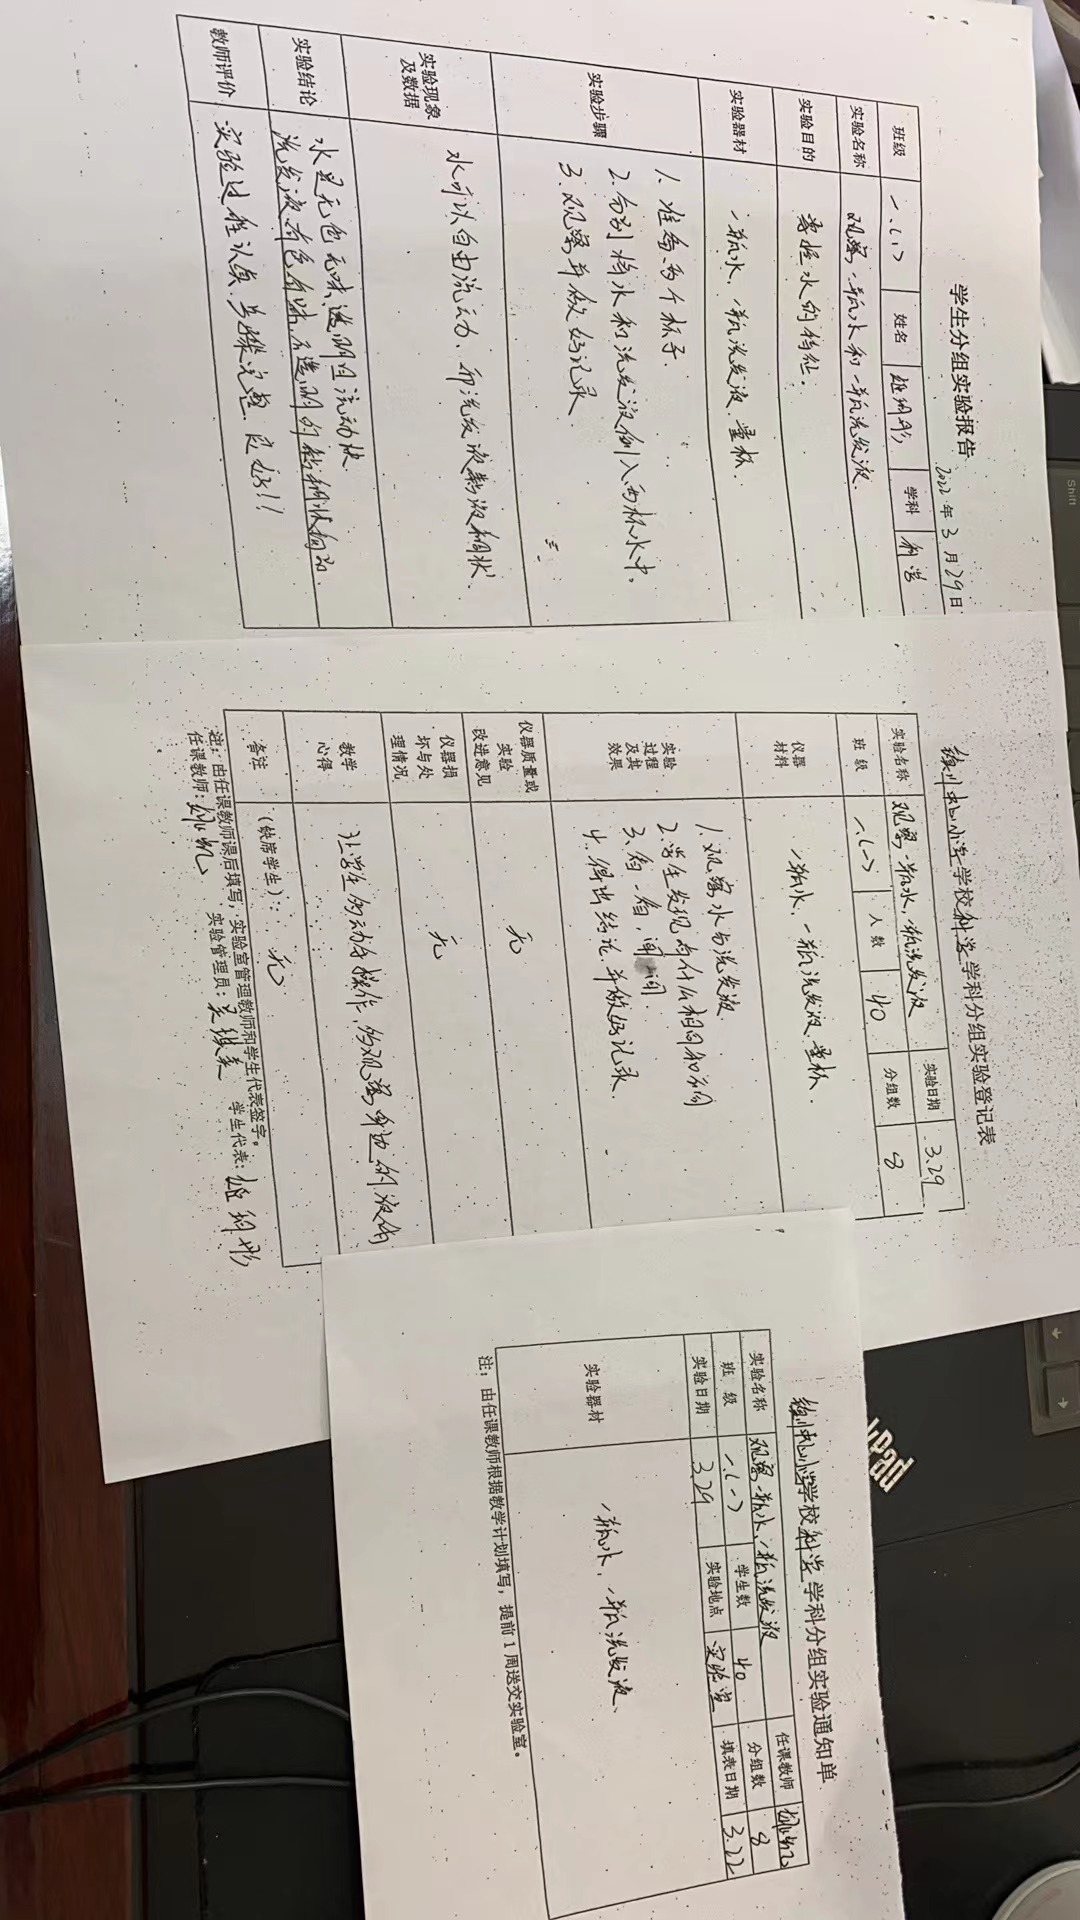 学生分组实验报告
2022年3月29日
班级 一.(一) 姓名 学科 科学
实验名称 观察一瓶水和一瓶洗发液.
实验目的 掌握水的特征.
实验器材 一瓶水, 一瓶洗发液. 量杯.
实验步骤
1. 准备两个杯子.
2. 分别将水和洗发液倒入两杯水中.
3. 观察并做好记录
实验现象及数据
水可以自由流动. 而洗发液黏液稠状.
实验结论
水是无色无味透明且流动快
洗发液有色有味.不透明的黏稠状
教师评价 实验过程认真,步骤完整. 良好!!
学校科学学科分组实验登记表
实验名称 观察一瓶水,一瓶洗发液 实验日期 3.29
班 级 一.(一) 人 数 40 分组数 8
仪器材料 一瓶水, 一瓶洗发液. 量杯.
实验过程及其效果
1. 观察水与洗发液.
2. 学生发现有什么相同和不同
3. 看一看, 闻一闻.
4. 得出结论. 并做好记录.
仪器质量或实验改进意见 无
仪器损坏与处理情况 无
教学心得 让学生的动手操作, 的观察身边的液体
备注 (缺席学生): 无
注: 由任课教师课后填写, 实验室管理教师和学生代表签字。
任课教师: 实验管理员: 学生代表:
学校科学学科分组实验通知单
实验名称 观察一瓶水,一瓶洗发液 任课教师
班 级 一.(一) 学生数 40 分组数 8
实验日期 3.29 实验地点 实验室 填表日期 3.22
实验器材 一瓶水, 一瓶洗发液、
注: 由任课教师根据教学计划填写, 提前1周送交实验室。
Shift